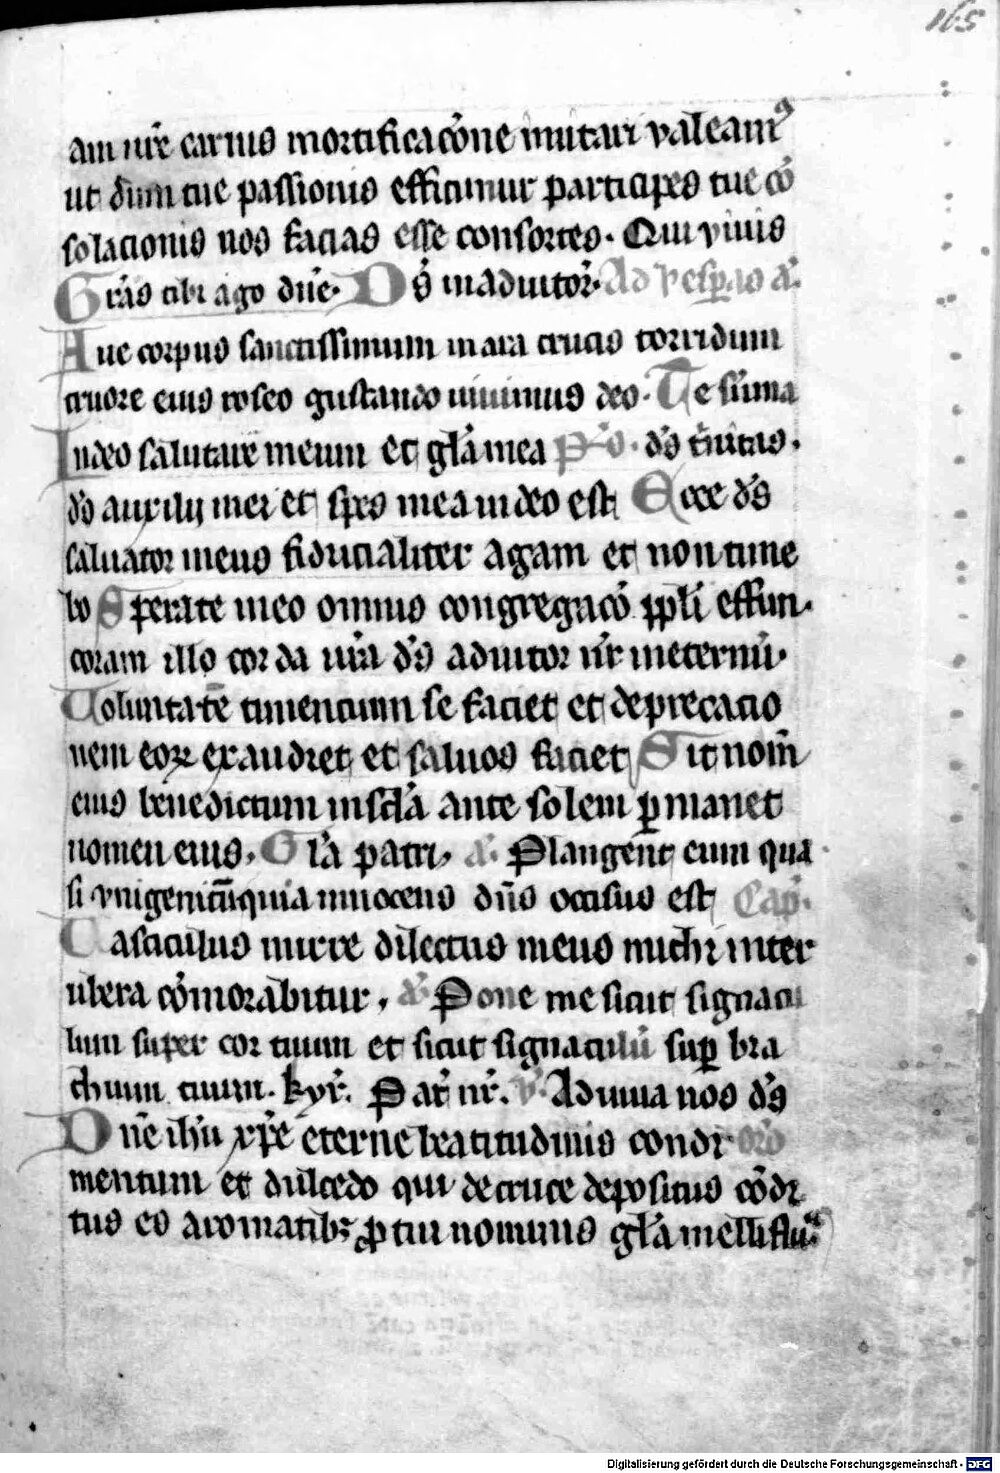 165
am nr̄e carnis mortificac̄one mutari valeamꝰ
ut dum tue passionis efficimur participes tue cō
solacionis nos facias esse consortes. Qui vivis
Grās tibi ago dn̄e. Ds̄ in adiutor̄. Ad vesꝑas a̅.
Aue corpus sanctissimum in ara crucis torridum
cruore eius roseo gustando uiuimus deo. Te sūma
In deo salutare meum et gl̄a mea ps̄. ds̄ tn̄itas.
ds̄ auxilij mei et spes mea in deo est Ecce ds̄
saluator meus fiducialiter agam et non time
bo Sperate in eo omnis congregac̄o pp̄li effun.
coram illo corda ur̄a ds̄ adiutor nr̄ in eternū.
Voluntatē timencium se faciet et deprecacio
nem eoꝝ exaudiet et saluos faciet Sit nom̄
eius benedictum in sc̄la ante solem ꝑmanet
nomen eius. Gl̄a patri. a̅. Plangent eum qua
si vnigenitū quia innocens dn̄s occisus est Cap̄.
Fasciculus mirre dilectus meus michi inter
ubera cōmorabitur. Pone me sicut signacu
lum super cor tuum et sicut signaculū suꝑ bra
chium tuum. kyr̄. Pat̄ nr̄. V̄. Adiuua nos ds̄
Dn̄e ih̄u xp̄e eterne beatitudinis condi oro̅
mentum et dulcedo qui de cruce depositus cōdi
tus es aromatibꝫ ꝓ tui nominis gl̄a melliflu
Digitalisierung gefördert durch die Deutsche Forschungsgemeinschaft - DFG